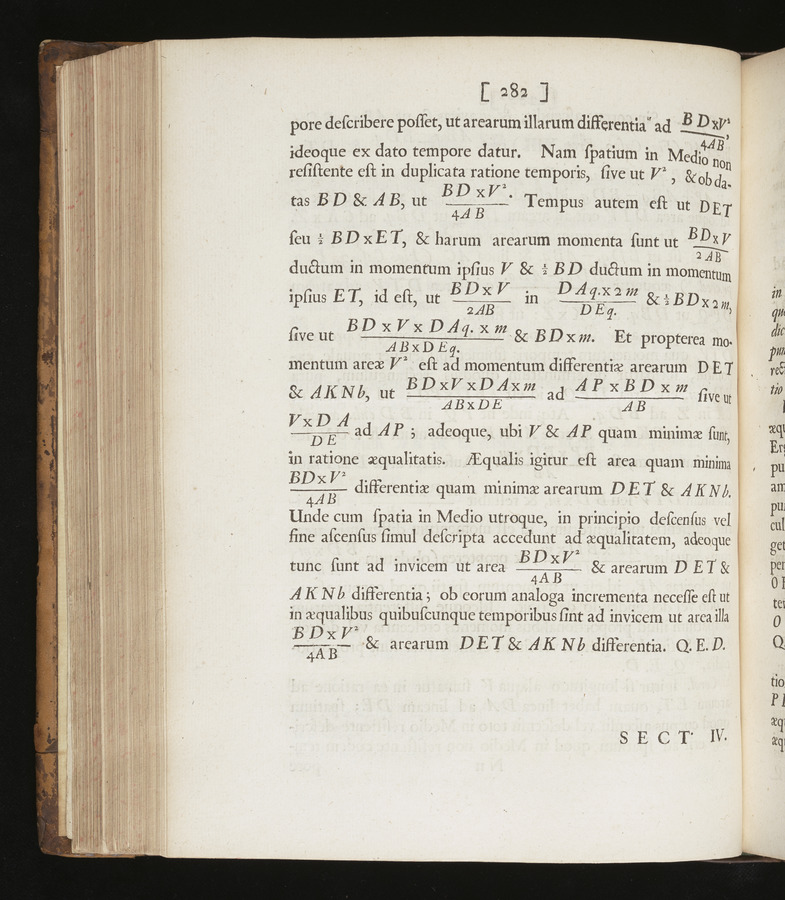 [ 282 ]
pore deſcribere poſſet, ut arearum illarum differentia ad BDxV²/4AB,
ideoque ex dato tempore datur. Nam ſpatium in Medio non
reſiſtente eſt in duplicata ratione temporis, ſive ut V², & ob da-
tas BD & AB, ut BD x V²/4AB. Tempus autem eſt ut DET
ſeu ½ BD x ET, & harum arearum momenta ſunt ut BD x V/2AB
ductum in momentum ipſius V & ½ BD ductum in momentum
ipſius ET, id eſt, ut BD x V/2AB in DAq. x 2m/DEq. & ½ BD x 2m,
ſive ut BD x V x DAq. x m/AB x DEq. & BD x m. Et propterea mo-
mentum areæ V² eſt ad momentum differentiæ arearum DET
& AKNb, ut BD x V x DA x m/AB x DE ad AP x BD x m/AB ſive ut
V x DA/DE ad AP; adeoque, ubi V & AP quam minimæ ſunt,
in ratione æqualitatis. Æqualis igitur eſt area quam minima
BD x V²/4AB differentiæ quam minimæ arearum DET & AKNb.
Unde cum ſpatia in Medio utroque, in principio deſcenſus vel
fine aſcenſus ſimul deſcripta accedunt ad æqualitatem, adeoque
tunc ſunt ad invicem ut area BD x V²/4AB & arearum DET &
AKNb differentia; ob eorum analoga incrementa neceſſe eſt ut
in æqualibus quibuſcunque temporibus ſint ad invicem ut area illa
BD x V²/4AB & arearum DET & AKNb differentia. Q. E. D.
SECT. IV.
in
que
dic
pun
rect
tio
æqu
Erg
pu
am
pu
cul
get
per
O
ter
O
Q
tio
P
æq
æq